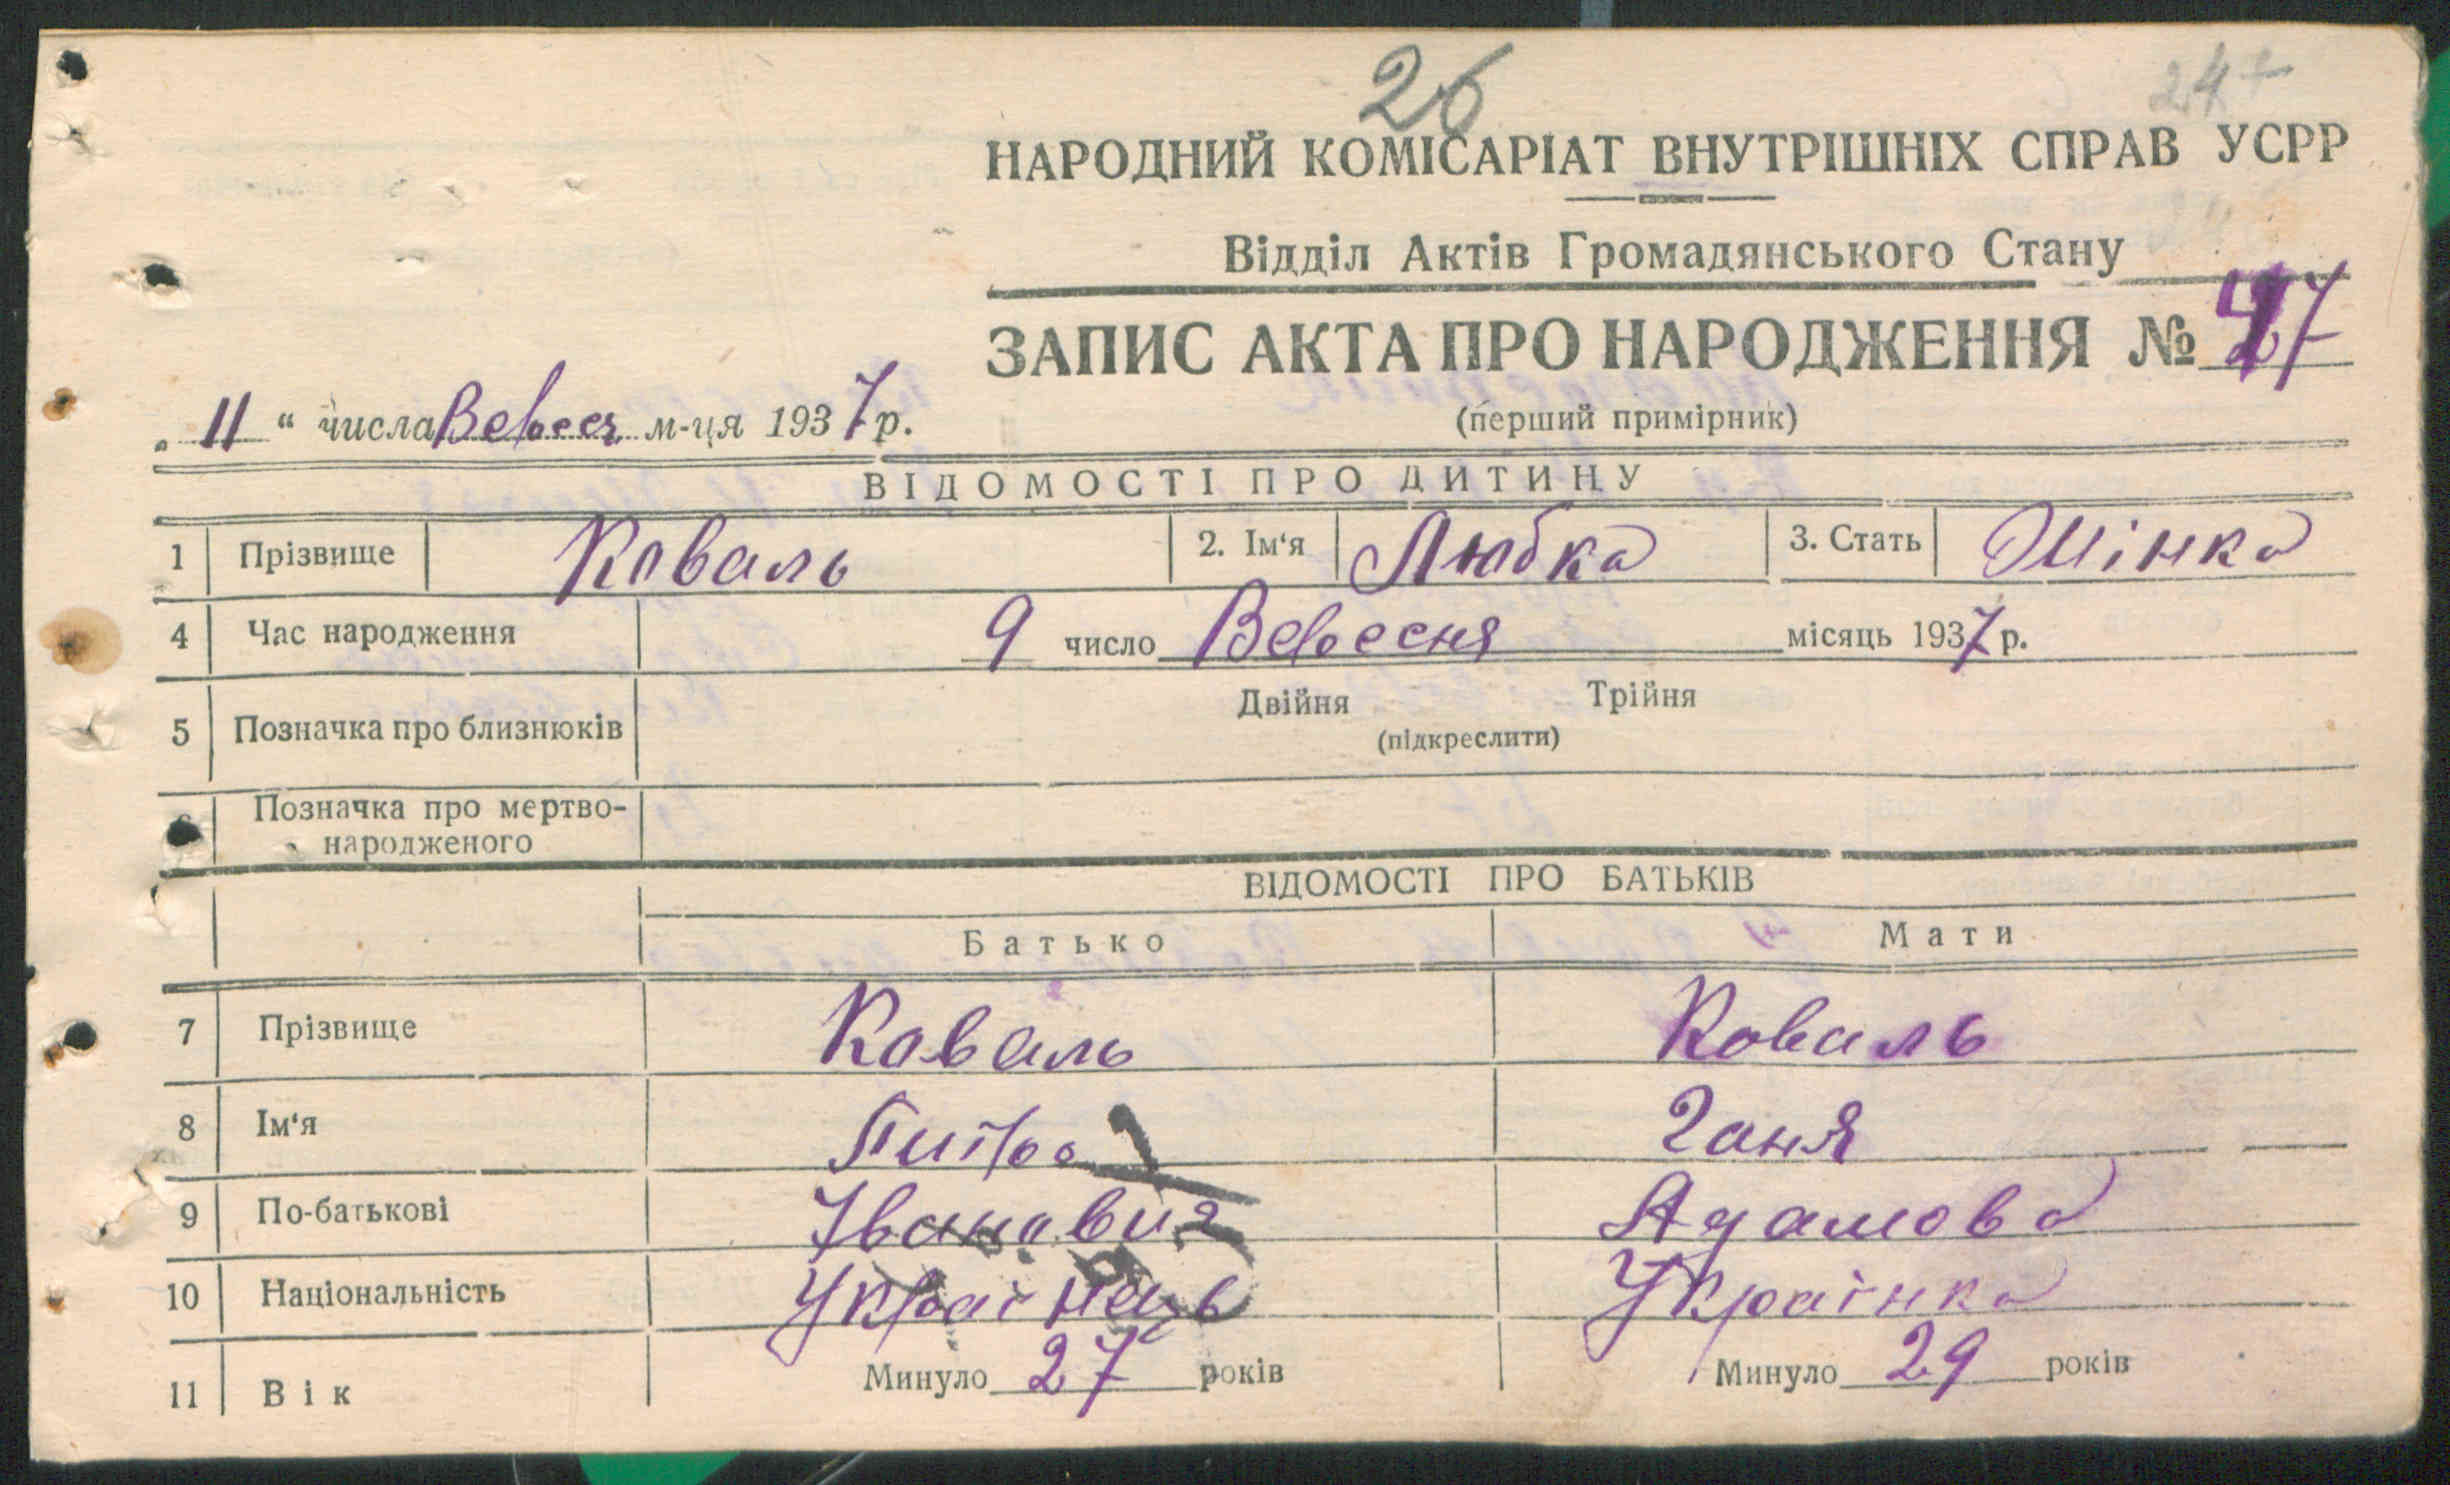 26
247
НАРОДНИЙ КОМІСАРІАТ ВНУТРІШНІХ СПРАВ УСРР
Відділ Актів Громадянського Стану
ЗАПИС АКТА ПРО НАРОДЖЕННЯ №
„ 11 “ числа Вевесея м-ця 1937 р.
(перший примірник)
ВІДОМОСТІ ПРО ДИТИНУ
1 Прізвище Коваль 2. Ім‘я Любка 3. Стать Жінка
4 Час народження 9 число Вевесня місяць 1937 р.
5 Позначка про близнюків Двійня Трійня
(підкреслити)
6 Позначка про мертво-
народженого
ВІДОМОСТІ ПРО БАТЬКІВ
Батько Мати
7 Прізвище Коваль Коваль
8 Ім‘я Ганя
9 По-батькові Іванович Адамова
10 Національність Украінець Украінка
11 Вік Минуло 27 років Минуло 29 років